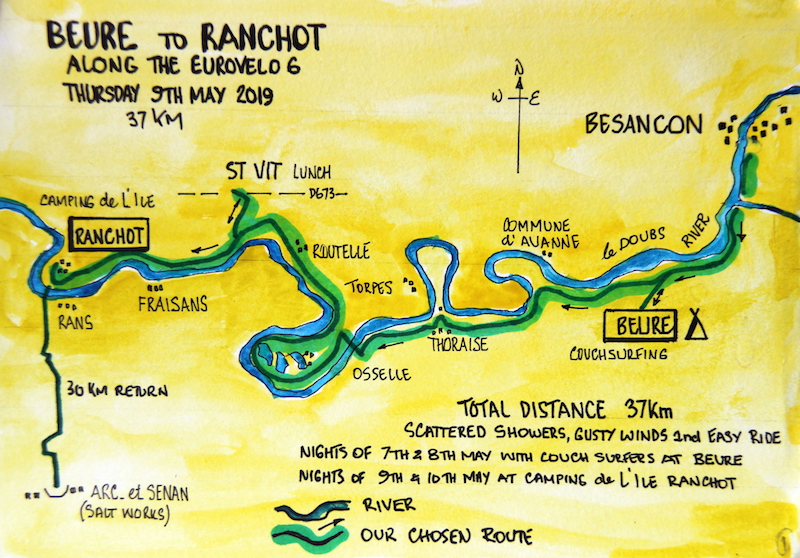 BEURE TO RANCHOT
ALONG THE EUROVELO 6
THURSDAY 9TH MAY 2019
37 KM
N
W E
BESANCON
ST VIT LUNCH
D673
CAMPING de L'ILE
RANCHOT
ROUTELLE
COMMUNE
d'AVANNE
le DOUBS RIVER
TORPES
FRAISANS
RANS
THORAISE
BEURE
COUCHSURFING
OSSELLE
30 KM RETURN
TOTAL DISTANCE 37Km
SCATTERED SHOWERS, GUSTY WINDS and EASY RIDE
NIGHTS OF 7TH & 8TH MAY WITH COUCH SURFERS AT BEURE
NIGHTS OF 9TH & 10TH MAY AT CAMPING de L'ILE RANCHOT
ARC-et SENAN
(SALT WORKS)
RIVER
OUR CHOSEN ROUTE
1